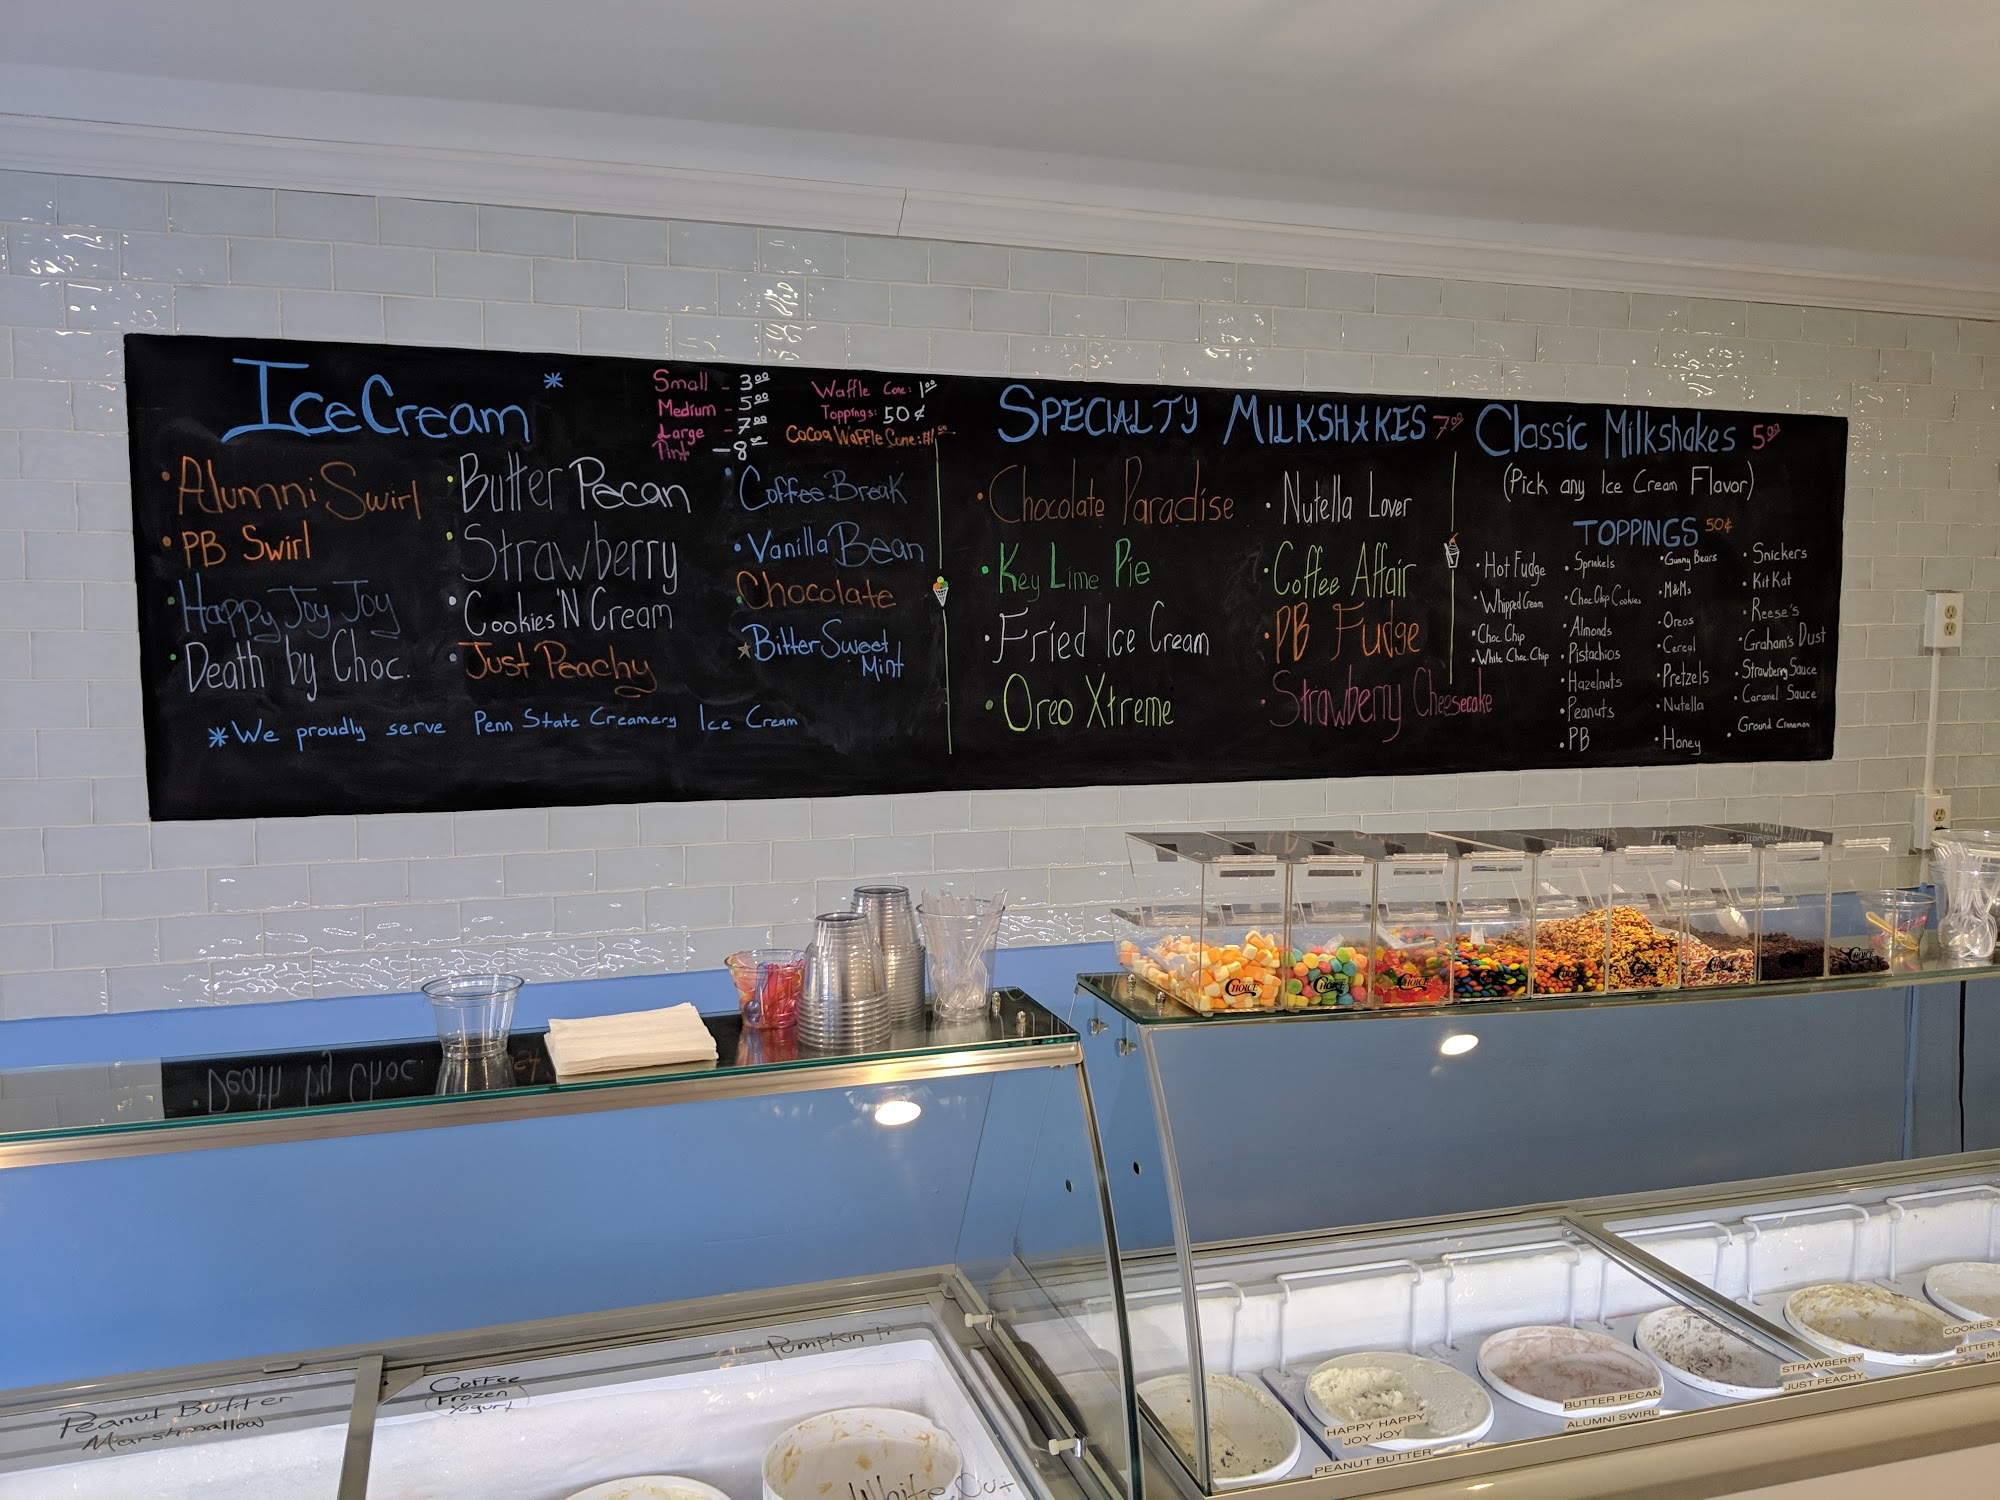 IceCream *
Small - 3.00
Medium - 5.00
Large - 7.00
Pint - 8
Waffle Cone: 1.00
Toppings: 50¢
Cocoa Waffle Cone:
• Alumni Swirl
• PB Swirl
• Happy Joy Joy
• Death by Choc.
• Butter Pecan
• Strawberry
• Cookies 'N Cream
• Just Peachy
• Coffee Break
• Vanilla Bean
• Chocolate
★ BitterSweet
Mint
*We proudly serve Penn State Creamery Ice Cream
SPECIALTY MILKSHAKES 7.00
• Chocolate Paradise
• Key Lime Pie
• Fried Ice Cream
• Oreo Xtreme
• Nutella Lover
• Coffee Affair
• PB Fudge
• Strawberry Cheesecake
Classic Milkshakes 5.00
(Pick any Ice Cream Flavor)
TOPPINGS 50¢
• Hot Fudge
• Whipped Cream
• Choc Chip
• White Choc Chip
• Sprinkels
• Choc Chip Cookies
• Almonds
• Pistachios
• Hazelnuts
• Peanuts
• PB
• Gummy Bears
• M&Ms
• Oreos
• Cereal
• Pretzels
• Nutella
• Honey
• Snickers
• Kit Kat
• Reese's
• Graham's Dust
• Strawberry Sauce
• Caramel Sauce
• Ground Cinnamon
CHOICE
CHOICE
CHOICE
CHOICE
CHOICE
CHOICE
CHOICE
CHOICE
Peanut Butter
Marshmallow
Coffee
Frozen
Yogurt
Pumpkin
White Out
HAPPY HAPPY
JOY JOY
PEANUT BUTTER
BUTTER PECAN
ALUMNI SWIRL
STRAWBERRY
JUST PEACHY
COOKIES
BITTER